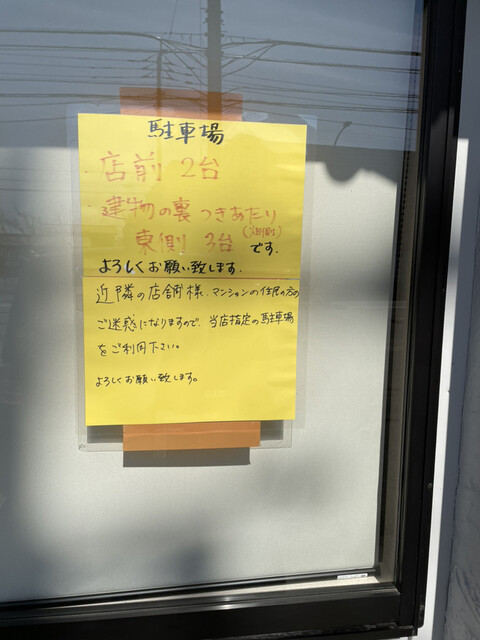 駐車場
・店前 2台
・建物の裏 つきあたり
東側 3台 です。
よろしくお願い致します。
近隣の店舗様、マンションの住民の方の
ご迷惑になりますので、当店指定の駐車場
をご利用下さい。
よろしくお願い致します。